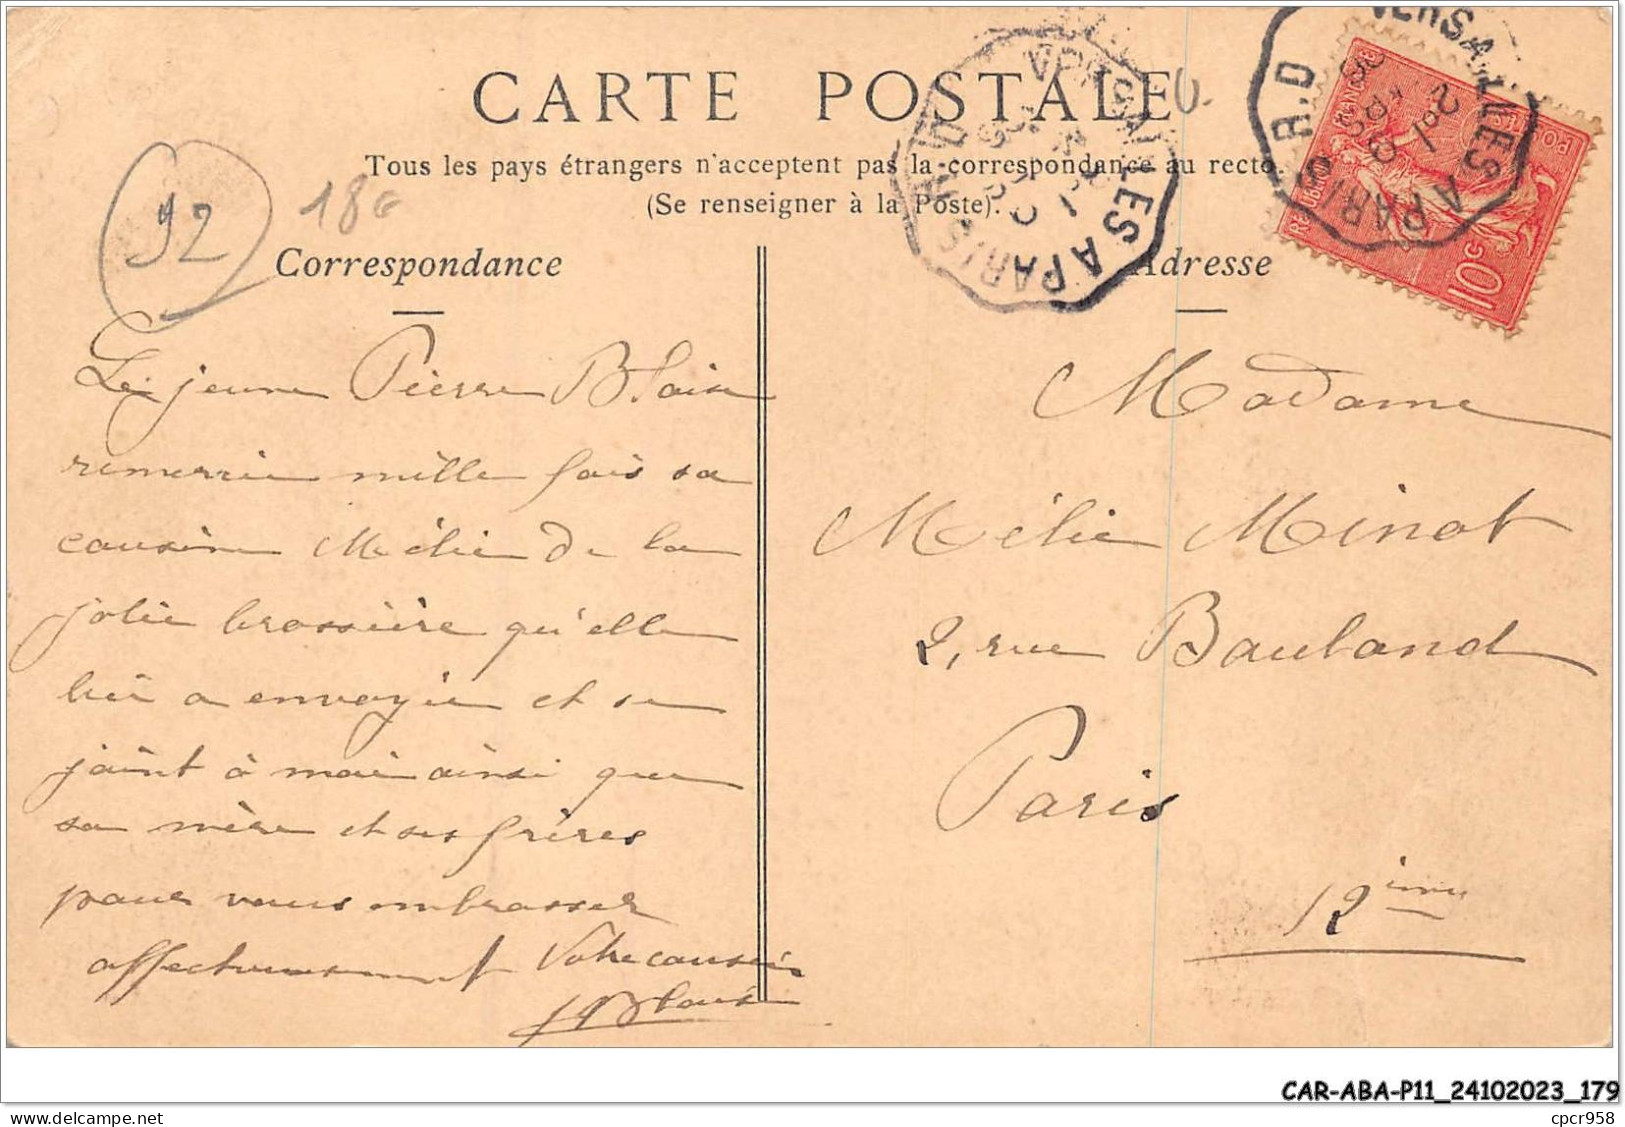 CARTE POSTALE
Tous les pays étrangers n'acceptent pas la correspondance au recto.
(Se renseigner à la Poste).
92
18€
Correspondance
Adresse
VERSAILLES A PARIS R.D
VERSAILLES A PARIS R.D
POSTES
10c
Le jeune Pierre Blaise
remercie mille fois sa
cousine Mélie de la
jolie brassière qu'elle
lui a envoyée et se
joint à moi ainsi que
sa mère et ses frères
pour vous embrasser
affectueusement Votre cousin
Blaise
Madame
Mélie Minot
2, rue Bauland
Paris
12ème
CAR-ABA-P11_24102023_179
cpcr958